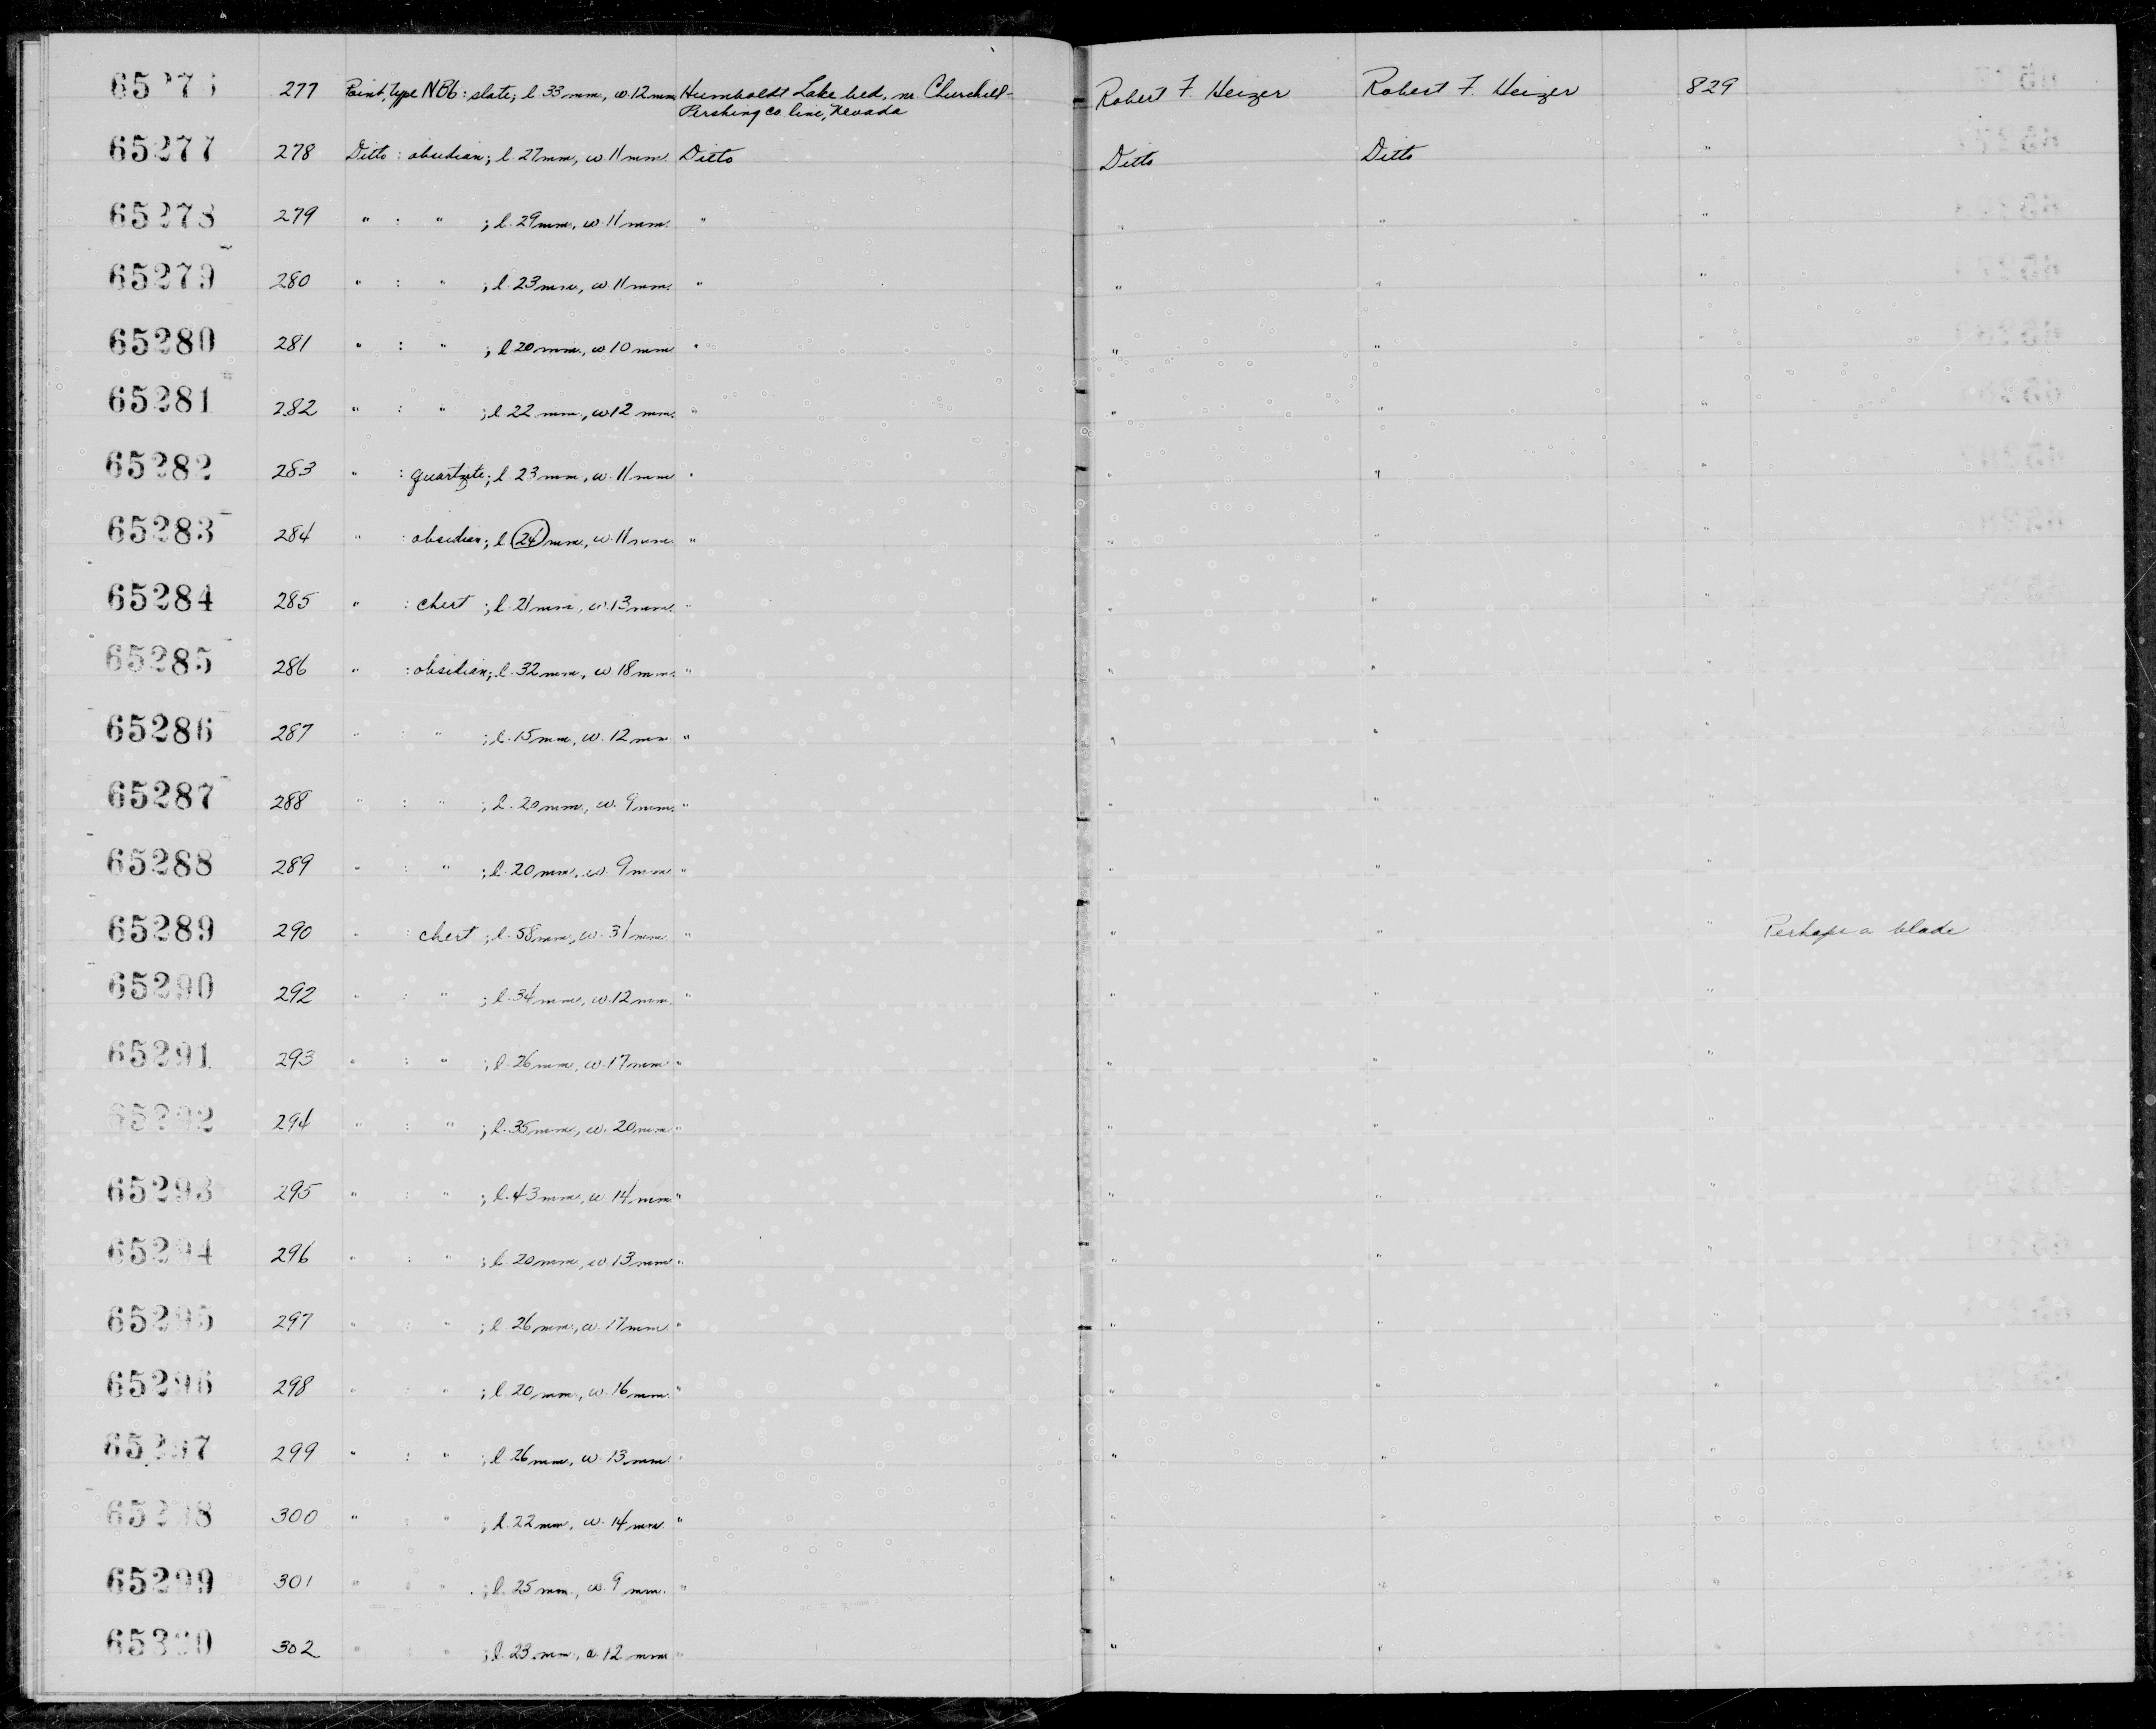 65276 277 Point, type NBb: slate; l 33 mm, w. 12 mm Humboldt Lake bed, nr. Churchill- Robert F. Heizer Robert F. Heizer 829
Pershing co. line, Nevada
65277 278 Ditto : obsidian; l. 27mm, w. 11mm. Ditto Ditto Ditto "
65278 279 " : " ; l. 29mm, w. 11mm. " " " "
65279 280 " : " ; l. 23mm, w. 11mm. " " " "
65280 281 " : " ; l 20mm, w 10 mm " " " "
65281 282 " : " ; l 22 mm, w 12 mm. " " " "
65282 283 " : quartzite; l. 23mm, w. 11mm " " " "
65283 284 " : obsidian; l 24 mm, w. 11mm " " " "
65284 285 " : chert ; l. 21mm, w. 13mm. " " " "
65285 286 " : obsidian; l. 32mm, w 18mm. " " " "
65286 287 " : " ; l. 15mm, w. 12mm " " " "
65287 288 " : " ; l. 20mm, w. 9mm. " " " "
65288 289 " : " ; l. 20mm, w. 9mm " " " "
65289 290 " : chert ; l. 58mm, w. 31mm. " " " " Perhaps a blade
65290 292 " : " ; l. 34mm, w. 12mm. " " " "
65291 293 " : " ; l. 26mm, w. 17mm " " " "
65292 294 " : " ; l. 35mm, w. 20mm " " " "
65293 295 " : " ; l. 43mm, w 14mm " " " "
65294 296 " : " ; l. 20mm, w. 13mm " " " "
65295 297 " : " ; l 26mm, w. 17mm " " " "
65296 298 " : " ; l. 20mm, w. 16mm. " " " "
65297 299 " : " ; l 26mm, w. 13mm " " " "
65298 300 " : " ; l. 22mm, w. 14mm " " " "
65299 301 " : " ; l. 25mm, w. 9 mm. " " " "
65300 302 " : " ; l. 23mm, w. 12 mm " " "